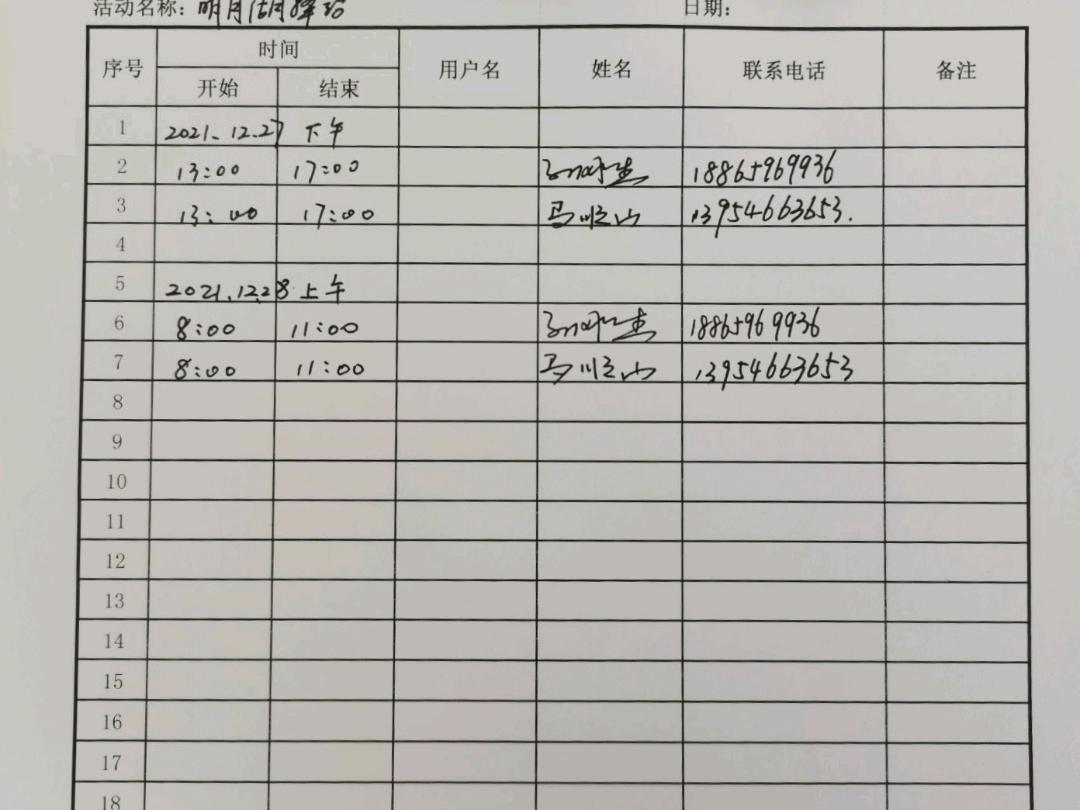 活动名称：明月湖驿站 日期：
序号 时间 用户名 姓名 联系电话 备注
开始 结束
1 2021.12.27 下午
2 13:00 17:00 18865969936
3 13:00 17:00 马顺山 13954663653.
4
5 2021.12.28 上午
6 8:00 11:00 18865969936
7 8:00 11:00 马顺山 13954663653
8
9
10
11
12
13
14
15
16
17
18